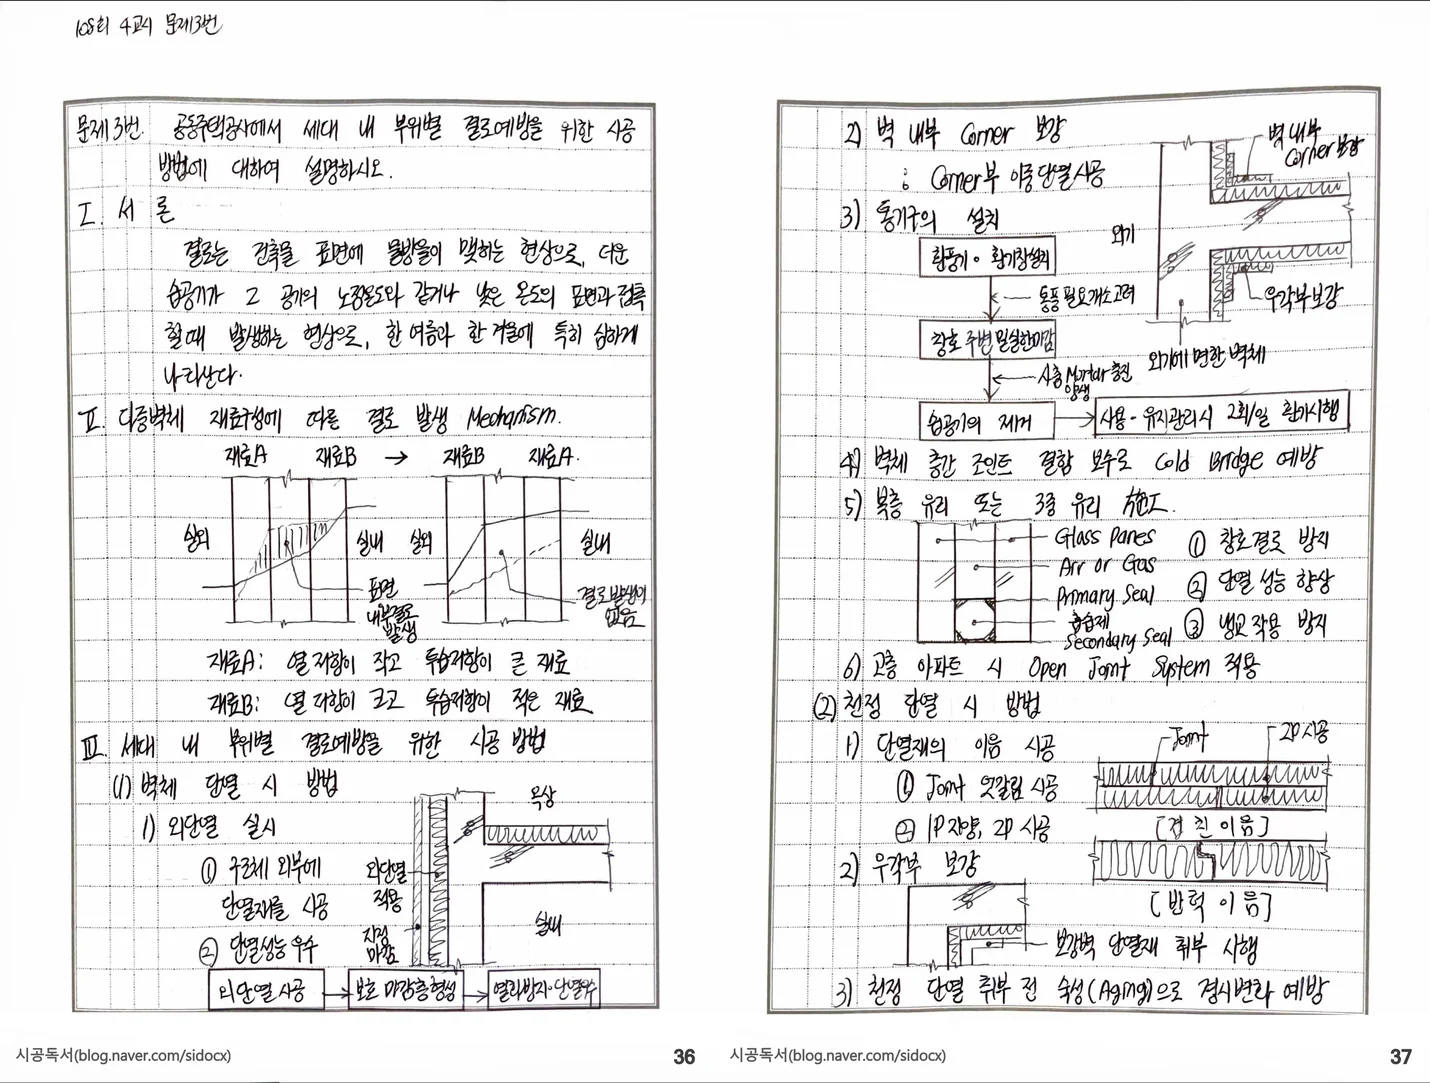 108회 4교시 문제3번
문제3번. 공동주택공사에서 세대 내 부위별 결로예방을 위한 시공
방법에 대하여 설명하시오.
I. 서 론
결로는 건축물 표면에 물방울이 맺히는 현상으로, 더운
습공기가 그 공기의 노점온도와 같거나 낮은 온도의 표면과 접촉
할 때 발생하는 현상으로, 한 여름과 한 겨울에 특히 심하게
나타난다.
II. 다중벽체 재료구성에 따른 결로 발생 Mechanism.
재료A 재료B → 재료B 재료A.
실외 실내 실외 실내
표면
내부결로
발생
결로발생이
없음
재료A: 열저항이 작고 투습저항이 큰 재료
재료B: 열저항이 크고 투습저항이 적은 재료
III. 세대 내 부위별 결로예방을 위한 시공 방법
(1) 벽체 단열 시 방법
1) 외단열 실시
① 구조체 외부에
단열재를 시공
② 단열성능 우수
옥상
외단열
적용
지정
마감
실내
외단열 시공 → 보호 마감층 형성 → 열교방지·단열우수
시공독서(blog.naver.com/sidocx)
36
2) 벽 내부 Corner 보강
: Corner부 이중단열시공
벽 내부
Corner 보강
외기
우각부보강
외기에 면한 벽체
3) 통기구의 설치
환풍기·환기창설치
통풍 필요개소고려
창호 주변 밀실한마감
시층 Mortar 충진
양생
습공기의 제거 → 사용·유지관리시 2회/일 환기시행
4) 벽체 층간 조인트 결함 보수로 Cold Bridge 예방
5) 복층 유리 또는 3중 유리 施工.
Glass Panes
Air or Gas
Primary Seal
흡습제
Secondary Seal
① 창호결로 방지
② 단열 성능 향상
③ 냉교 작용 방지
6) 고층 아파트 시 Open Joint System 적용
(2) 천정 단열 시 방법
1) 단열재의 이음 시공
① Joint 엇갈림 시공
② 1P지양, 2P 시공
Joint
2P 시공
[겹친 이음]
[반턱 이음]
2) 우각부 보강
보강벽 단열재 취부 시행
3) 천정 단열 취부 전 숙성(Aging)으로 경시변화 예방
시공독서(blog.naver.com/sidocx)
37